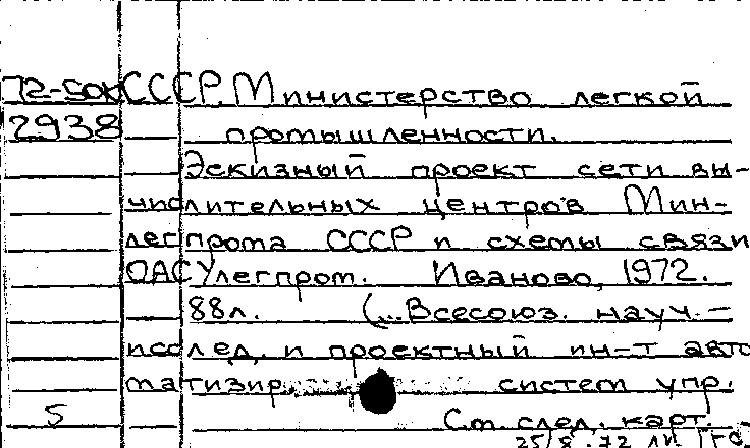 72-50к СССР. Министерство легкой
2938 промышленности.
Эскизный проект сети вы-
числительных центров Мин-
легпрома СССР и схемы связи
ОАСУлегпром. Иваново, 1972.
88л. (...Всесоюз. науч.-
исслед. и проектный ин-т авто
матизир. систем упр.
5 См. след. карт.
25/8.72